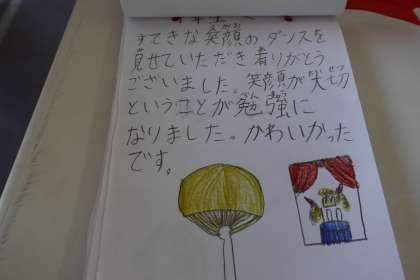 えがお
すてきな笑顔のダンスを
見せていただきありがとう
せつ
ございました。笑顔が大切
べんきょう
ということが勉強に
なりました。かわいかった
です。